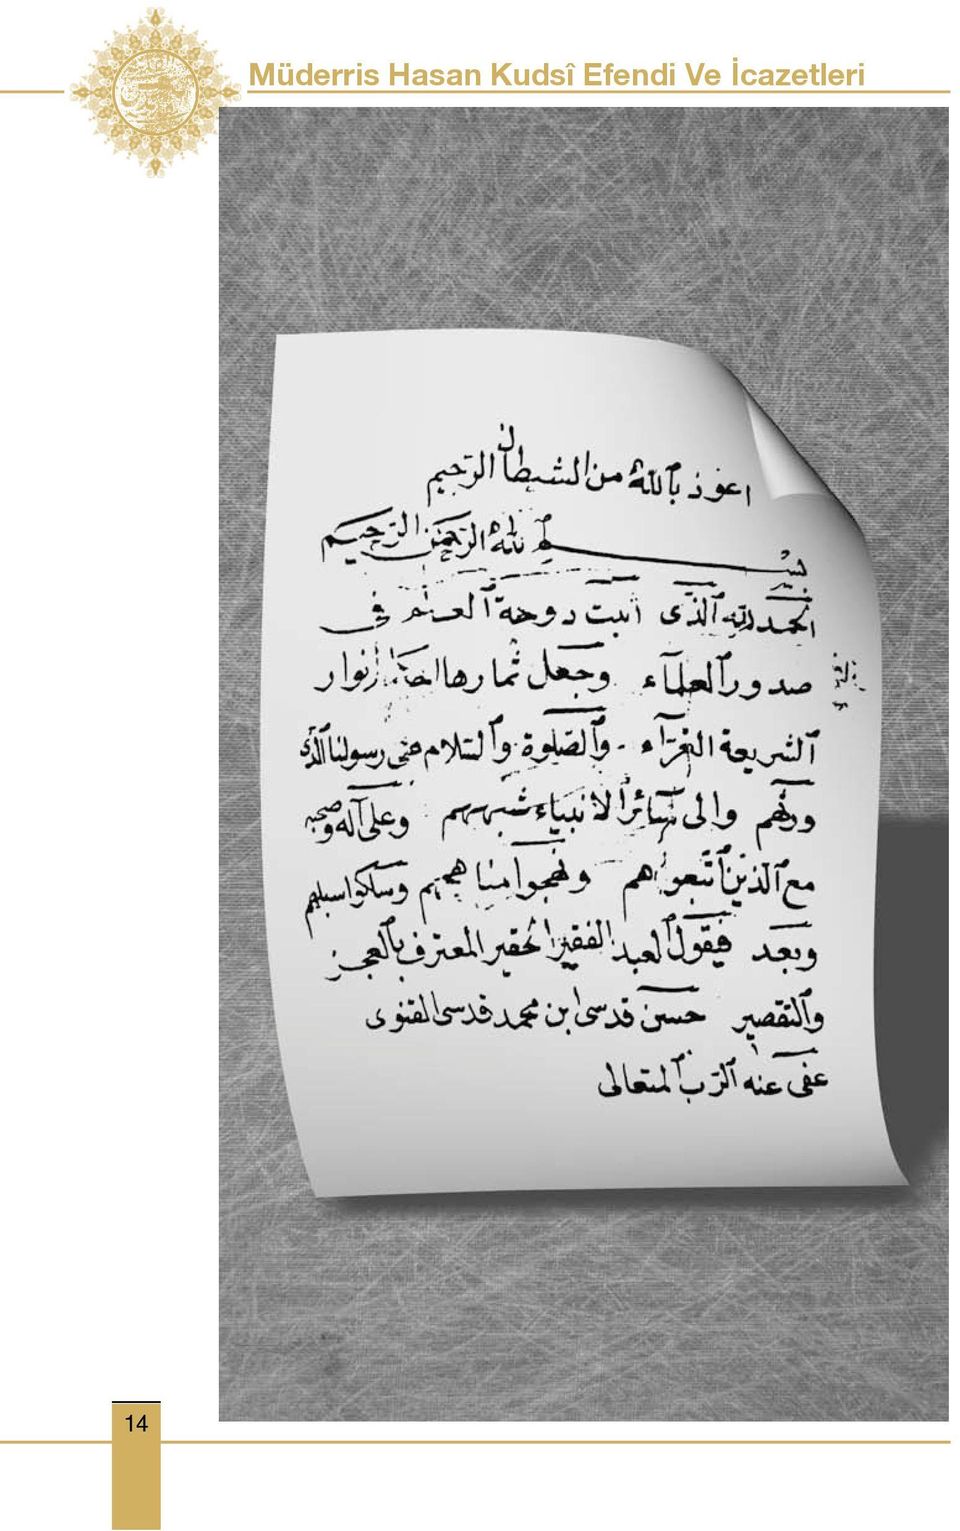 Müderris Hasan Kudsî Efendi Ve İcazetleri
اعوذ بالله من الشيطان الرجيم
بسم الله الرحمن الرحيم
الحمد لله الذى انبت دوحة العلم فى
صدور العلماء وجعل ثمارها انوار
الشريعة الغراء والصلوة والسلام على رسولنا الذى
والى سائر الانبياء وعلى آله وصحبه
مع الذين اتبعواهم ونهجوا مناهجهم وسلكوا سبلهم
وبعد فيقول العبد الفقير الحقير المعترف بالعجز
والتقصير حسن قدسى ابن محمد قدسى القنوى
عفى عنه الرب المتعالى
14